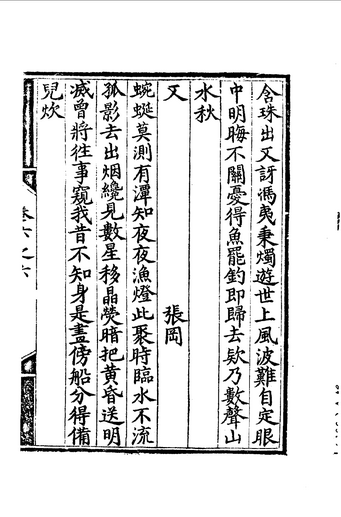 含珠出又訝馮夷秉燭遊世上風波難自定眼
中明晦不關憂得魚罷釣即歸去欸乃數聲山
水秋
又
張岡
蜿蜒莫測有潭知夜夜漁燈此聚時臨水不流
孤影去出烟纔見數星移晶熒暗把黄昏送明
滅曾將徃事窺我昔不知身是晝傍船分得備
兒炊
卷六之六